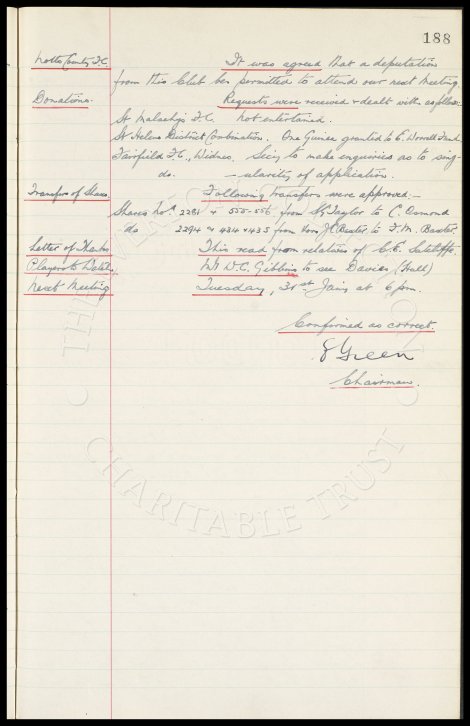 188
Notts County F.C. It was agreed that a deputation
from this Club be permitted to attend our next Meeting.
Donations. Requests were received & dealt with as follows:
St Malachy's F.C. Not entertained.
St Helens District Combination. One Guinea granted to E. Worrall Fund
Fairfield F.C., Widnes. Secy to make enquiries as to sing-
do. -ularity of application.
Transfers of Shares Following transfers were approved:-
Shares Nos. 2281 & 555-556, from Taylor to C. Osmond
do 2294 & 434 & 435 from Baxter to F. M. Baxter.
Letter of Thanks This read from relatives of C.E. Sutcliffe.
Players to Watch. Mr W.C. Gibbins to see Davies (Hull)
Next Meeting Tuesday, 31st Jany at 6 pm.
Confirmed as correct.
Green
Chairman.
CHARITABLE TRUST